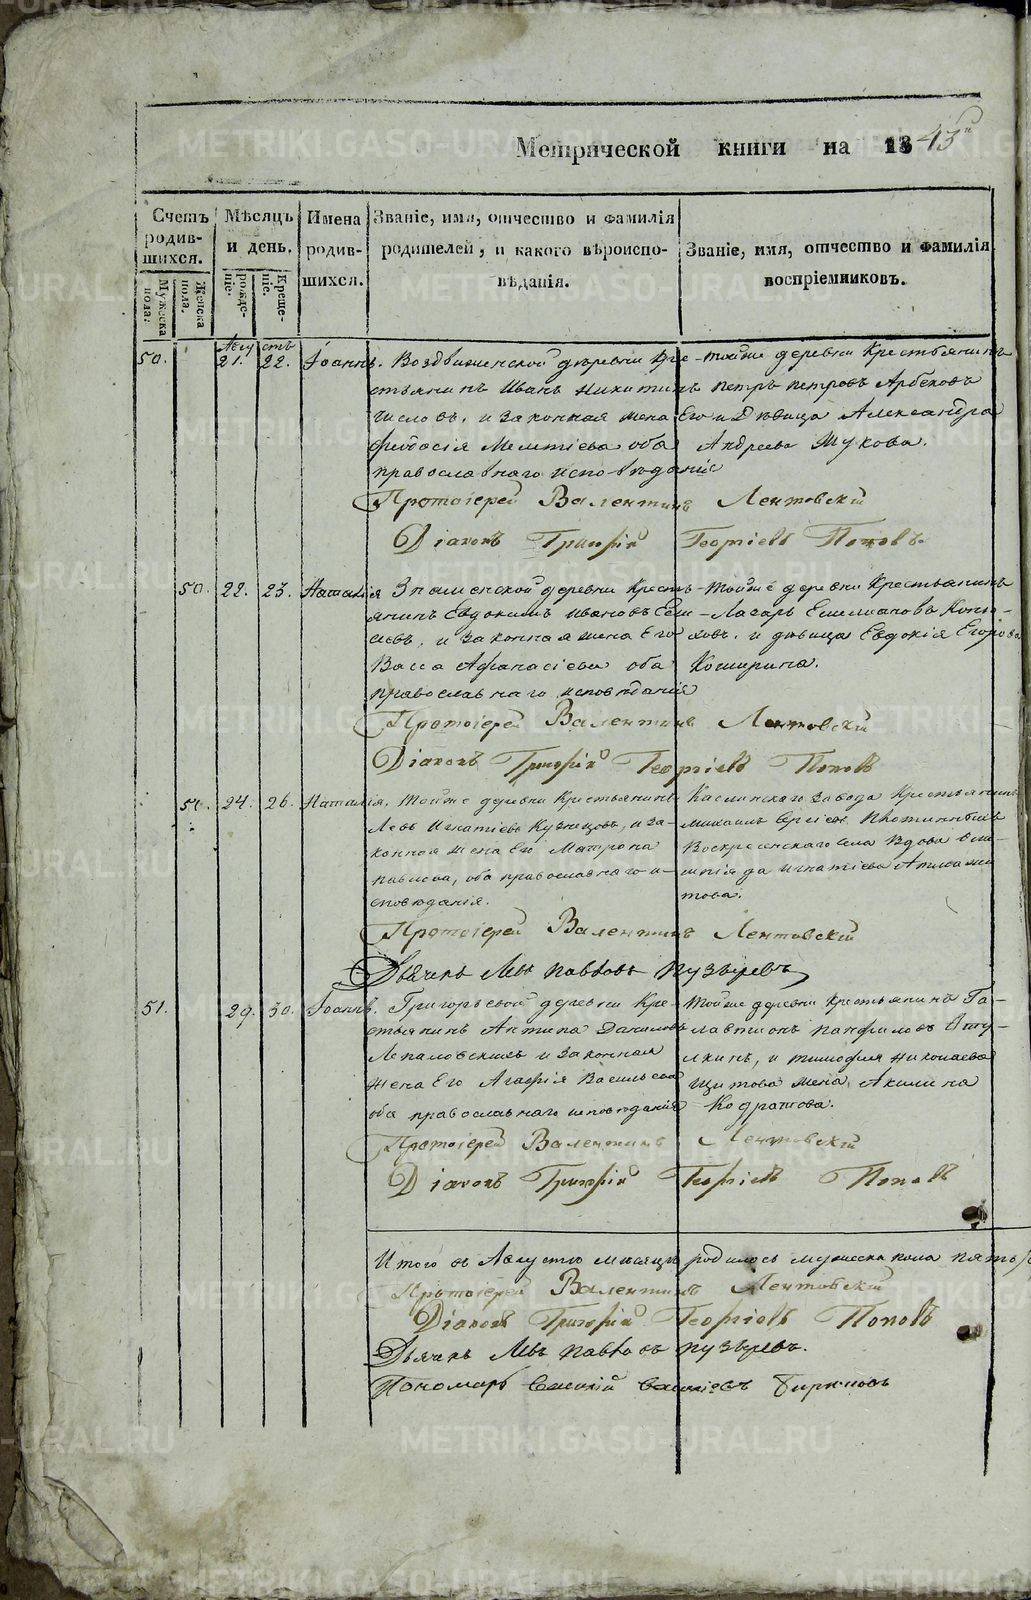 Метрической книги на 1843й
Счетъ родившихся.
Мужеска пола.
Женска пола.
Мѣсяцъ и день.
рожденіе.
Крещеніе.
Имена родившихся.
Званіе, имя, отчество и фамилія родителей, и какого вѣроисповѣданія.
Званіе, имя, отчество и фамилія воспріемниковъ.
Августъ
50. 21. 22. Іоаннъ. Воздвиженской деревни Кре- тойже деревни Крестьянинъ
стьянинъ Иванъ Никитинъ Петръ Петровъ
и законная жена Его и Дѣвица Александра
Ѳеодосія оба Андреева Жукова.
православнаго исповѣданія
Протоіерей Валентинъ Лентовскій
Діаконъ Григорій Георгіевъ Поповъ.
50. 22. 23. Наталія Знаменской деревни Кресть- тойже деревни Крестьянинъ
янинъ Евдокимъ Ивановъ Лазарь Емельяновъ
и законная жена Его и дѣвица Евдокія Егорова
Васса Афанасіева оба Коширина.
православнаго исповѣданія
Протоіерей Валентинъ Лентовскій
Діаконъ Григорій Георгіевъ Поповъ
51. 24. 26. Наталія. Тойже деревни Крестьянинъ Каслинскаго завода Крестьянинъ
Левъ Игнатіевъ Кузнецовъ, и за- Михаилъ Сергіевъ
конная жена Его Матрона Воскресенскаго села Вдова
Павлова, оба православнаго и- Игнатіева
сповѣданія.
Протоіерей Валентинъ Лентовскій
Дьячекъ Левъ Павловъ Пузыревъ
51. 29. 30. Іоаннъ. Григорьевой деревни Кре- тойже деревни Крестьянинъ Га-
стьянинъ Антипа Даниловъ лактіонъ Панфиловъ
и законная и Тимофея Николаева
жена Его Агафія Васильева жена Акилина
оба православнаго исповѣданія Кодратова.
Протоіерей Валентинъ Лентовскій
Діаконъ Григорій Георгіевъ Поповъ
Итого въ Августѣ мѣсяцѣ родилось мужеска пола пять
Протоіерей Валентинъ Лентовскій
Діаконъ Григорій Георгіевъ Поповъ
Дьячекъ Левъ Павловъ Пузыревъ.
Пономарь
METRIKI.GASO-URAL.RU